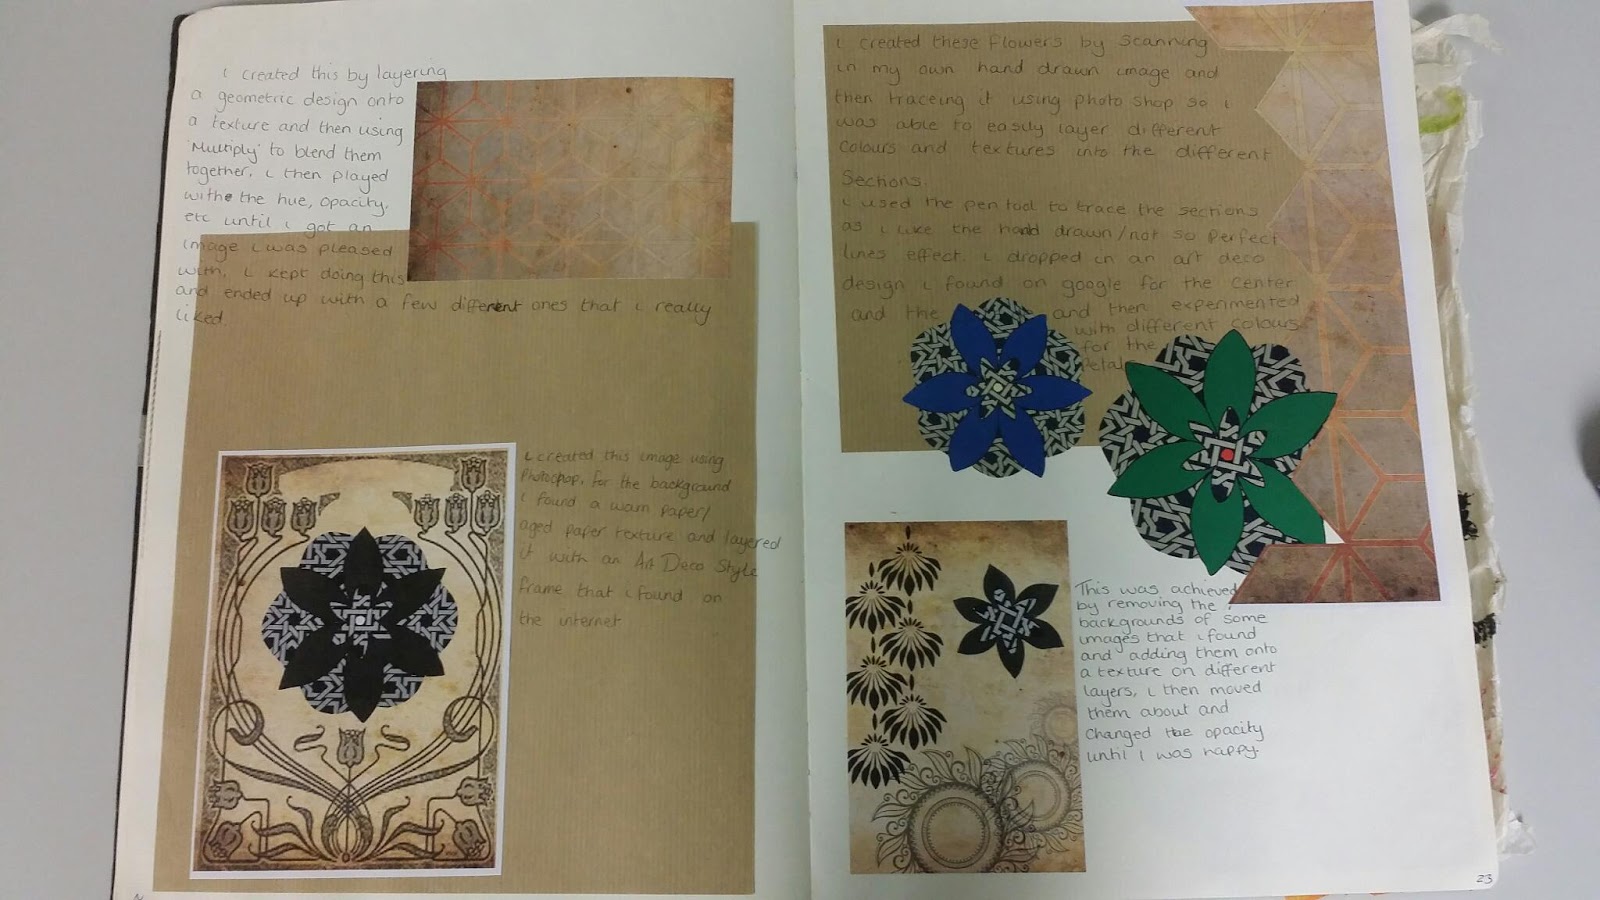 i created this by layering
a geometric design onto
a texture and then using
'Multiply' to blend them
together, i then played
withe the hue, opacity,
etc until i got an
image i was pleased
with. i kept doing this
and ended up with a few different ones that i really
liked.
i created this image using
Photoshop, for the background
i found a warn paper/
aged paper texture and layered
it with an Art Deco Style
frame that i found on
the internet
i created these flowers by scanning
in my own hand drawn image and
then traceing it using photo shop so i
was able to easily layer different
colours and textures into the different
Sections.
i used the pen tool to trace the sections
as i like the hand drawn/not so perfect
lines effect. i dropped in an art deco
design i found on google for the center
and the and then experimented
with different colours
for the
Petals
This was achieved
by removing the
backgrounds of some
images that i found
and adding them onto
a texture on different
layers, i then moved
them about and
changed the opacity
until i was happy.
23